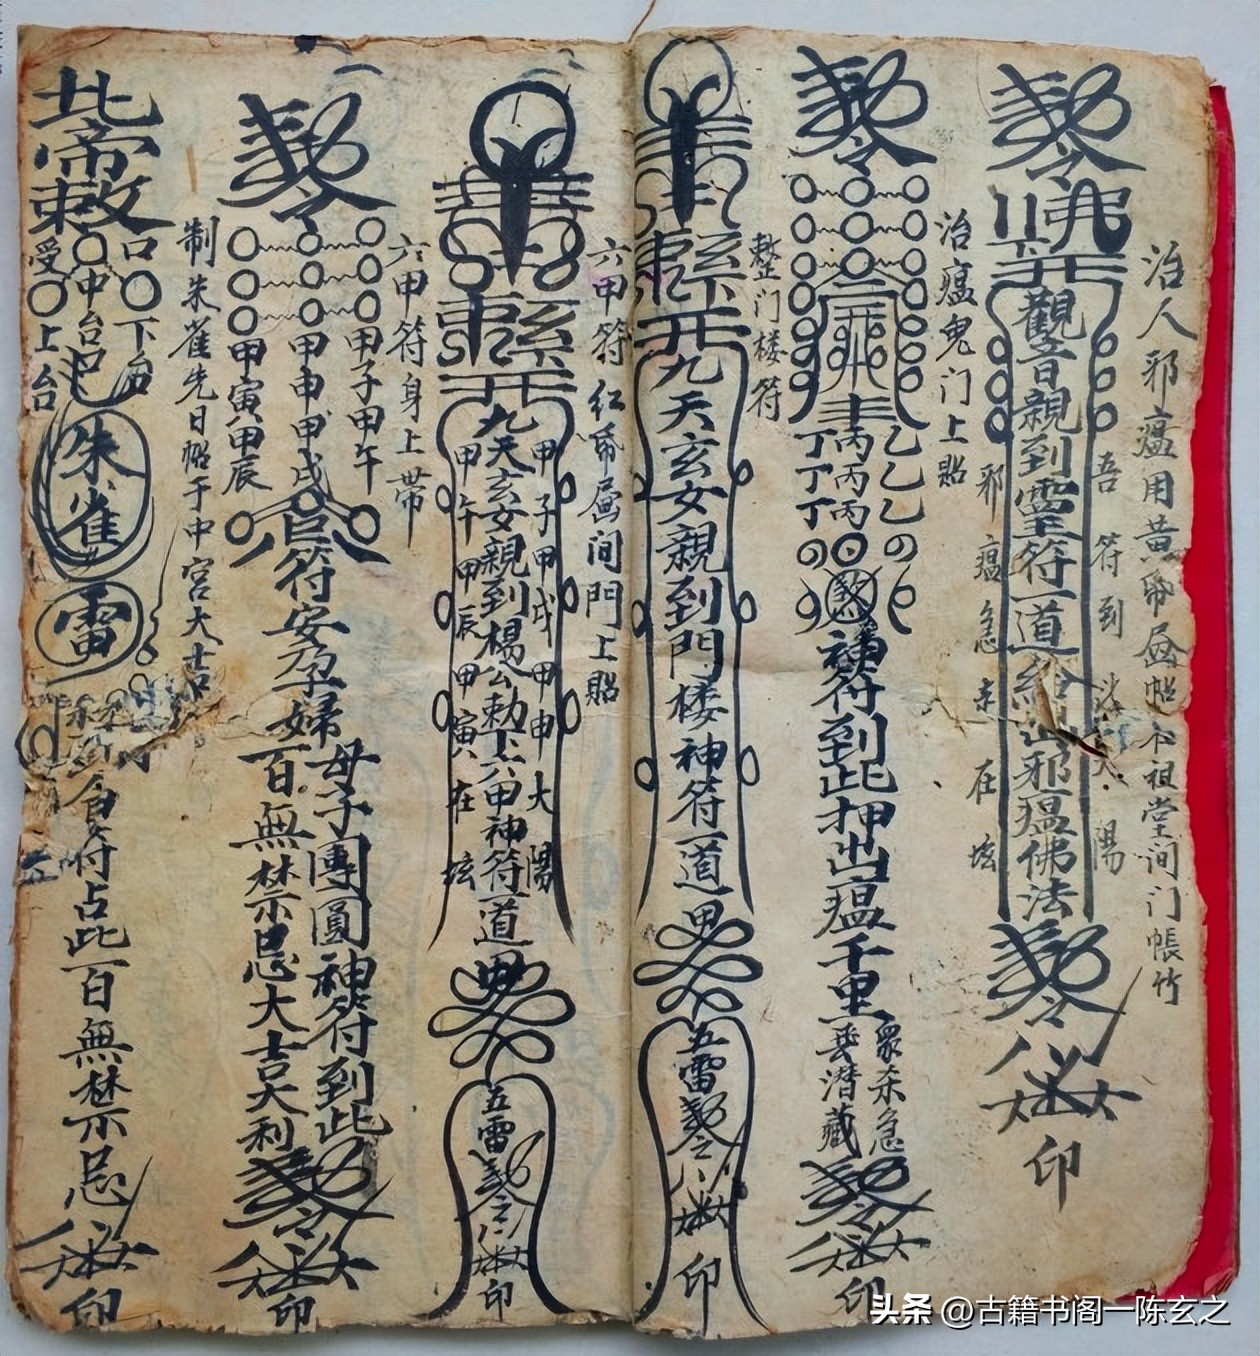 治人邪瘟用黄帋屇帖不祖堂间门帳竹
吾符到
陽
觀音親到靈符一道給出邪瘟佛法
邪瘟急走在坛
印
治瘟鬼门上贴
乙乙乙
丙丙丙
丁丁丁
符到此押出瘟千里
众杀急
潜藏
印
整门楼符
九天玄女親到門楼神符一道
五雷
印
六甲符红帋屇间門上贴
甲子甲戌甲申大陽
九天玄女親到楊公勅上六甲神符一道
甲午甲辰甲寅在坛
五雷
印
六甲符身上带
甲子甲午
甲申甲戌
甲寅甲辰
符安孕婦
母子團圓神符到此
百無禁忌大吉大利
印
制朱雀先日帖于中宫大吉
北帝敕
口下台
中台
受上台
朱雀
雷
符占此百無禁忌
印
头条 @古籍书阁一陈玄之